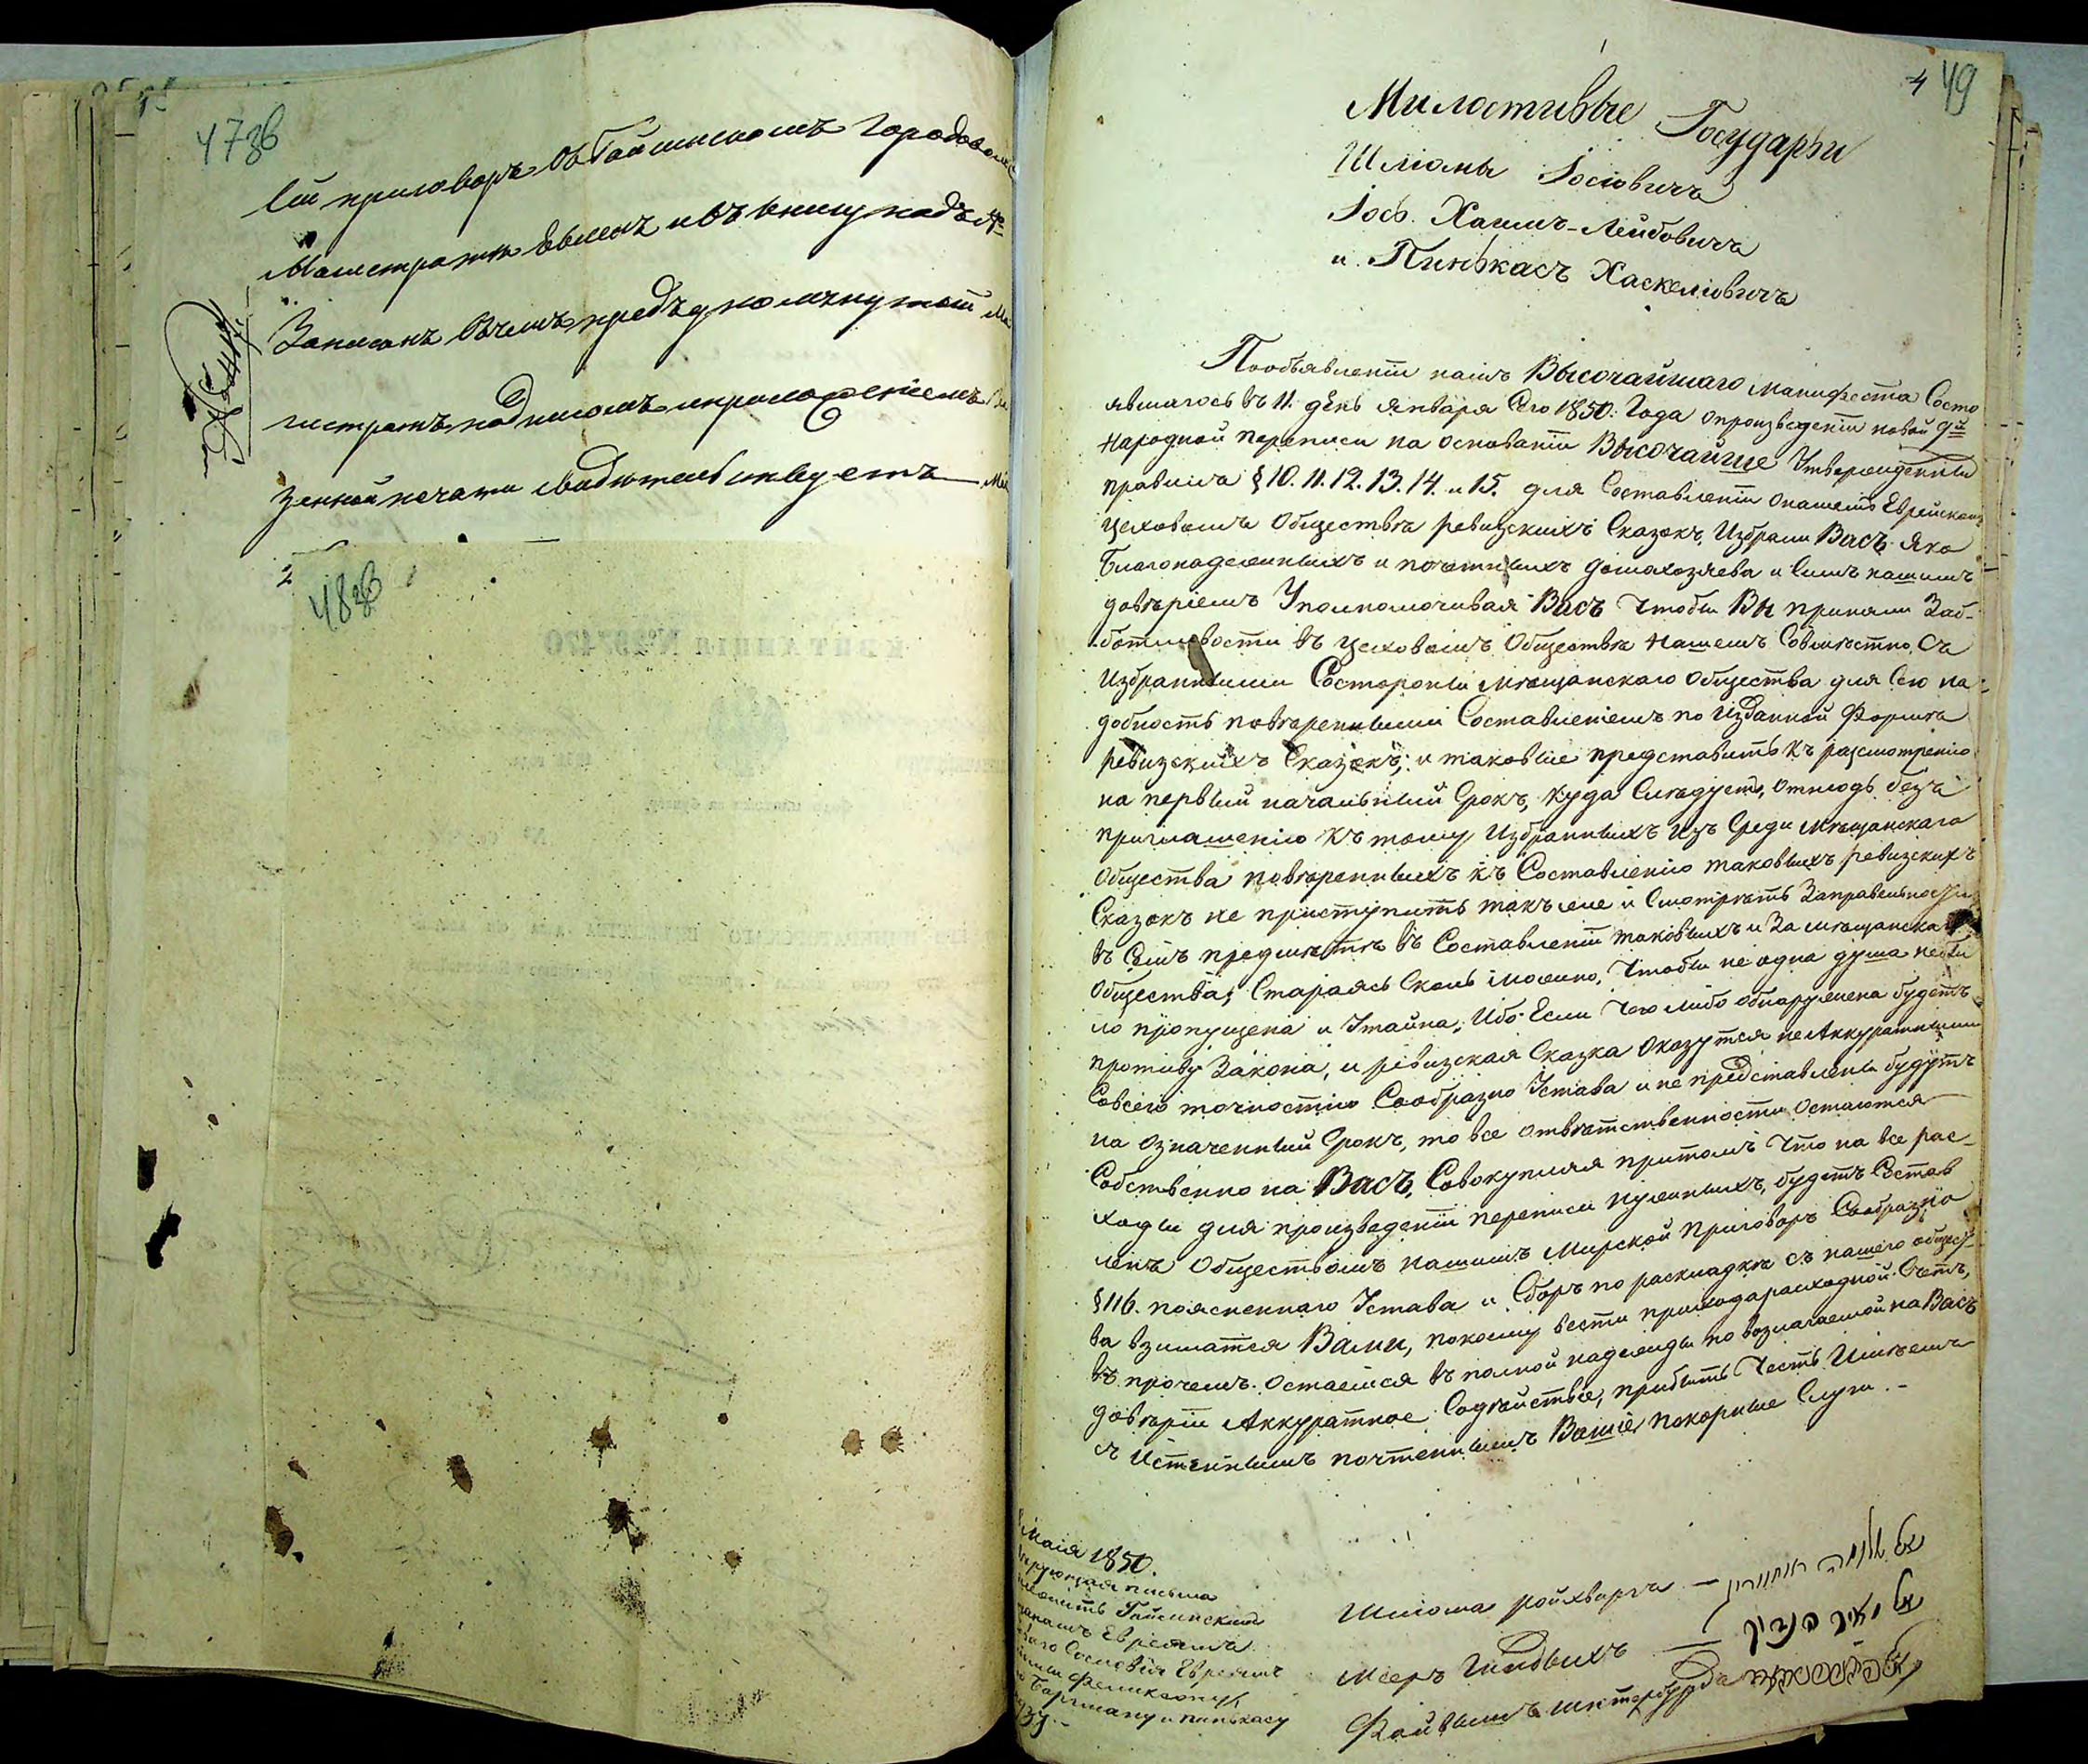 47зв
Сей приговоръ въ Гайсинскомъ Городовомъ
Магистратѣ явленъ и въ книгу подъ №
Записанъ въ чемъ предъупомянутый Ма
гистратъ подписомъ и приложеніемъ
зенной печати свидѣтельствуетъ
48зв
КВИТАНЦІЯ №
49
Милостивые Государи
Шліома Іосіовичъ
Іось Хаимъ-Лейбовичъ
и Пинькасъ Хаскеліовичъ
Пообъявленіи намъ Высочайшаго манифеста Состо
явшагось въ 11. день января Сего 1850: Года опроизведеніи новой 9й
народной переписи на основаніи Высочайше Утвержденныхъ
правилъ § 10. 11. 12. 13. 14. и 15. для Составленіи онашемъ Еврейскомъ
цеховомъ Обществѣ ревизскихъ Сказокъ, Избрали Васъ яко
благонадежныхъ и почотныхъ домохозяева и Симъ нашимъ
довѣріемъ Уполномочивая Васъ чтобы Вы приняли Заб-
ботливости въ цеховомъ Обществѣ нашемъ Совмѣстно Съ
Избранными Состороны мѣщанскаго Общества для Сею на
добность повѣренными Составленіемъ по Изданной Формѣ
ревизскихъ Сказокъ; и таковые представить къ разсмотренію
на первый начальный Срокъ, куда Слѣдуетъ, отнюдь безъ
приглашенію къ тому Избранныхъ Изъ Среди мѣщанскаго
Общества повѣренныхъ къ Составленію таковыхъ ревизскихъ
Сказокъ не приступить также и Смотрѣть Заправельностью
въ Семъ предметѣ въ Составленіи таковыхъ и За мѣщанска
Общества; Стараясь Сколь можно, Чтобы не одна душа небы
ло пропущена и Утайна; Ибо Если Чего либо обнаружена будетъ
противу Закона, и ревизская Сказка Окажутся неАккуратными
Совсею точностію Сообразно Устава и не представлены будутъ
на означенный Срокъ, то все отвѣтственности остаются
Собственно на Васъ, Совокупляя притомъ Что на все рас-
ходы для произведеніи переписи нужныхъ, будетъ Состав
ленъ Обществомъ нашимъ Мирской Приговоръ Сообразно
§ 116. поясненнаго Устава и Сборъ по раскладкѣ съ нашего общест
ва взиматся Вами, покоему вести приходарасходной Счетъ,
въ прочемъ остаемся въ полной надежды по возлагаемой на Васъ
довѣріи Аккуратное Содѣйствіе, прибыть Честь Имѣемъ
съ Истеннымъ почтеннымъ Вашіе покорные Слуги. -
Маія 1850.
вѣрующая письма
Гайсинскимъ
Евреямъ
Сословія Евреямъ
Фениксону,
Боргману и пинькасу
Шліома ройхваргъ —
Мееръ Гиндыхъ —
Файвышъ